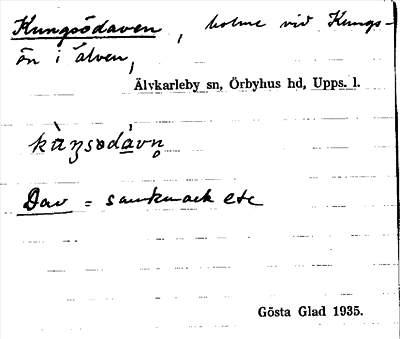 Kungsödaven, holme vid Kungs-
ön i älven,
Älvkarleby sn, Örbyhus hd, Upps. l.
kùŋsodávn̥
Dav = sankmark etc
Gösta Glad 1935.